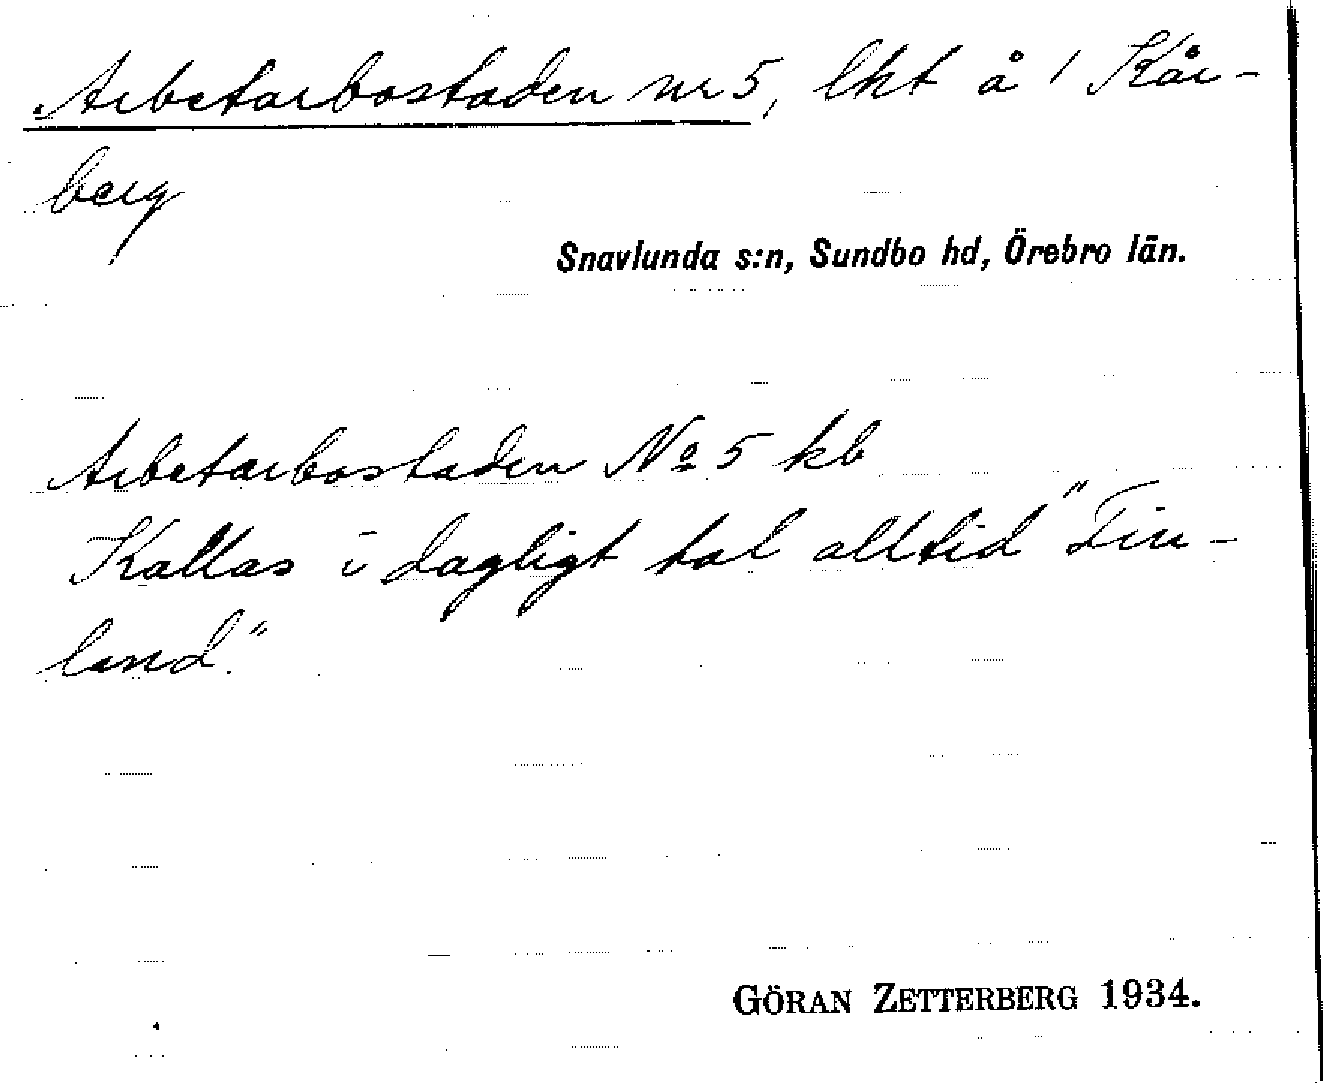 Arbetarbostaden nr 5, lht å 1 Kår-
berg
Snavlunda s:n, Sundbo hd, Örebro län.
Arbetarbostaden Nº 5 kb
Kallas i dagligt tal alltid "Fin-
land."
GÖRAN ZETTERBERG 1934.